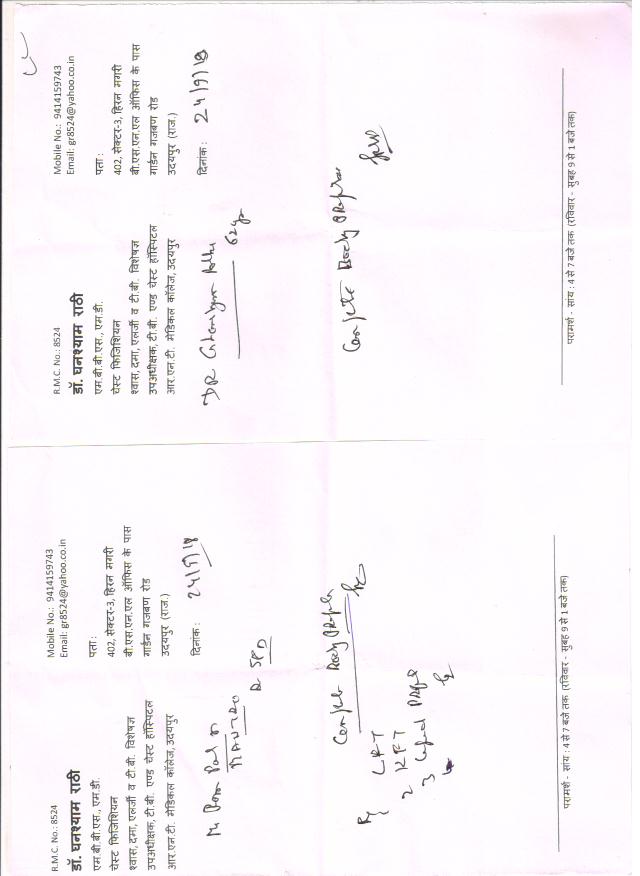 R.M.C. No.: 8524
डॉ. घनश्याम राठी
एम.बी.बी.एस., एम.डी.
चेस्ट फिजिशियन
श्वास, दमा, एलर्जी व टी.बी. विशेषज्ञ
उपअधीक्षक, टी.बी. एण्ड चेस्ट हॉस्पिटल
आर.एन.टी. मेडिकल कॉलेज, उदयपुर
Mobile No.: 9414159743
Email: gr8524@yahoo.co.in
पता :
402, सेक्टर-3, हिरन मगरी
बी.एस.एन.एल ऑफिस के पास
गार्डन गजबण रोड
उदयपुर (राज.)
दिनांक :
Body
LFT
2 KFT
3 Lipid
परामर्श - सांय : 4 से 7 बजे तक (रविवार - सुबह 9 से 1 बजे तक)
R.M.C. No.: 8524
डॉ. घनश्याम राठी
एम.बी.बी.एस., एम.डी.
चेस्ट फिजिशियन
श्वास, दमा, एलर्जी व टी.बी. विशेषज्ञ
उपअधीक्षक, टी.बी. एण्ड चेस्ट हॉस्पिटल
आर.एन.टी. मेडिकल कॉलेज, उदयपुर
Mobile No.: 9414159743
Email: gr8524@yahoo.co.in
पता :
402, सेक्टर-3, हिरन मगरी
बी.एस.एन.एल ऑफिस के पास
गार्डन गजबण रोड
उदयपुर (राज.)
दिनांक : 24/9/18
DR
Body
परामर्श - सांय : 4 से 7 बजे तक (रविवार - सुबह 9 से 1 बजे तक)